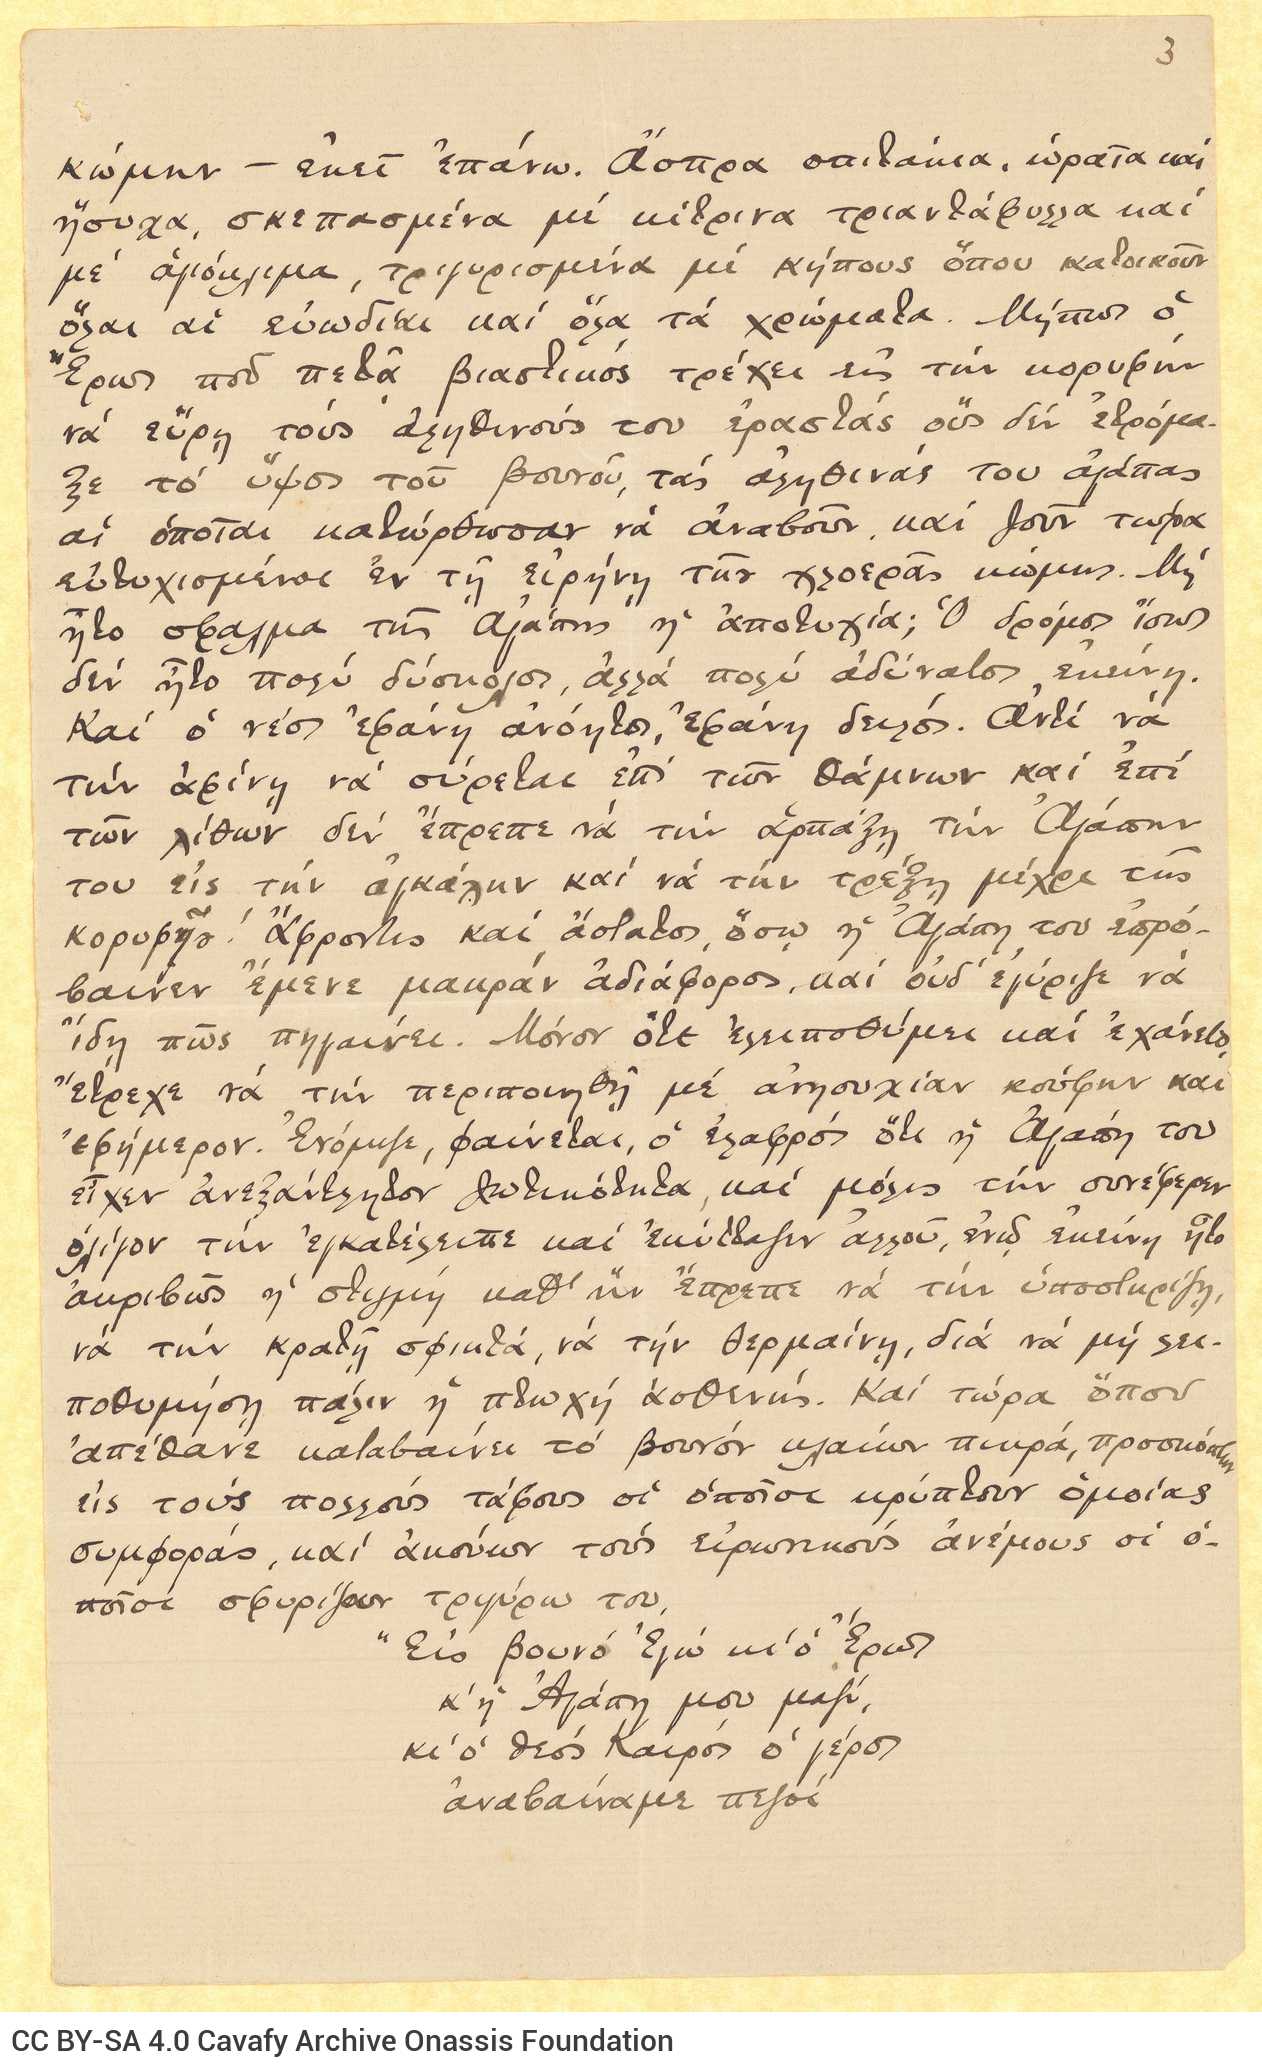 3
κώμην — ἐκεῖ ἐπάνω. Ἄσπρα σπιτάκια, ὡραῖα καὶ
ἥσυχα, σκεπασμένα μὲ κίτρινα τριαντάφυλλα καὶ
μὲ ἁγιόκλιμα, τριγυρισμένα μὲ κήπους ὅπου κατοικοῦν
ὅλαι αἱ εὐωδίαι καὶ ὅλα τὰ χρώματα. Μήπως ὁ
Ἔρως ποῦ πετᾷ βιαστικὸς τρέχει εἰς τὴν κορυφὴν
νὰ εὕρῃ τοὺς ἀληθινούς του ἐραστὰς οὓς δὲν ἐτρόμα-
ξε τὸ ὕψος τοῦ βουνοῦ, τὰς ἀληθινάς του ἀγάπας
αἱ ὁποῖαι κατώρθωσαν νὰ ἀναβοῦν, καὶ ζοῦν τώρα
εὐτυχισμένοι ἐν τῇ εἰρήνῃ τῆς χλοερᾶς κώμης. Μὴ
ἦτο σφάλμα τῆς Ἀγάπης ἡ ἀποτυχία; Ὁ δρόμος ἴσως
δὲν ἦτο πολὺ δύσκολος, ἀλλὰ πολὺ ἀδύνατος ἐκείνη.
Καὶ ὁ νέος ἐφάνη ἀνόητος, ἐφάνη δειλός. Ἀντὶ νὰ
τὴν ἀφίνῃ νὰ σύρεται ἐπὶ τῶν θάμνων καὶ ἐπὶ
τῶν λίθων δὲν ἔπρεπε νὰ τὴν ἁρπάξῃ τὴν Ἀγάπην
του εἰς τὴν ἀγκάλην καὶ νὰ τὴν τρέξῃ μέχρι τῆς
κορυφῆς! Ἄφροντις καὶ ἄστατος, ὅσῳ ἡ Ἀγάπη του ἐπρό-
βαινεν ἔμενε μακρὰν ἀδιάφορος, καὶ οὐδ' ἐγύριζε νὰ
ἴδῃ πῶς πηγαίνει. Μόνον ὅτε ἐλειποθύμει καὶ ἐχάνετο,
ἔτρεχε νὰ τὴν περιποιηθῇ μὲ ἀνησυχίαν κούφην καὶ
ἐφήμερον. Ἐνόμιζε, φαίνεται, ὁ ἐλαφρὸς ὅτι ἡ Ἀγάπη του
εἶχεν ἀνεξάντλητον ζωτικότητα, καὶ μόλις τὴν συνέφερεν
ὀλίγον τὴν ἐγκατέλειπε καὶ ἐκύτταζεν ἀλλοῦ, ἐνῷ ἐκείνη ἦτο
ἀκριβῶς ἡ στιγμὴ καθ' ἣν ἔπρεπε νὰ τὴν ὑποστηρίζῃ,
νὰ τὴν κρατῇ σφικτά, νὰ τὴν θερμαίνῃ, διὰ νὰ μὴ λει-
ποθυμήσῃ πάλιν ἡ πτωχὴ ἀσθενής. Καὶ τώρα ὅπου
ἀπέθανε καταβαίνει τὸ βουνὸν κλαίων πικρά, προσκόπτων
εἰς τοὺς πολλοὺς τάφους οἱ ὁποῖοι κρύπτουν ὁμοίας
συμφοράς, καὶ ἀκούων τοὺς εἰρωνικοὺς ἀνέμους οἱ ὁ-
ποῖοι σφυρίζουν τριγύρω του,
"Εἰς βουνὸ ἐγὼ κι' ὁ Ἔρως
κ' ἡ Ἀγάπη μου μαζύ,
κι' ὁ θεὸς Καιρὸς ὁ γέρος
ἀναβαίναμε πεζοὶ
CC BY-SA 4.0 Cavafy Archive Onassis Foundation